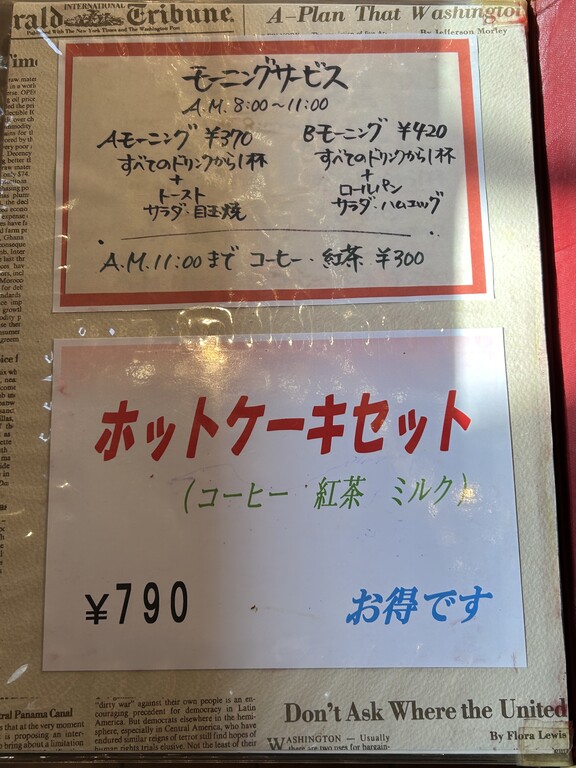 rald INTERNATIONAL Tribune.
Published With The New York Times and The Washington Post
A-Plan That Washington
By Jefferson Morley
モーニングサービス
A.M. 8:00~11:00
Aモーニング ¥370
すべてのドリンクから1杯
+
トースト
サラダ・目玉焼
Bモーニング ¥420
すべてのドリンクから1杯
+
ロールパン
サラダ・ハムエッグ
A.M.11:00まで コーヒー・紅茶 ¥300
ホットケーキセット
(コーヒー・紅茶 ミルク)
¥790
お得です
tral Panama Canal
s that at the very moment
is proposing an inter-
bring about a limitation
"dirty war" against their own people is an en-
couraging precedent for democracy in Latin
America. But democrats elsewhere in the hemi-
sphere, especially in Central America, who have
endured similar reigns of terror still find hopes of
human rights trials elusive. Not the least of their
Don't Ask Where the United
By Flora Lewis
WASHINGTON — Usually
there are two uses for bargain-